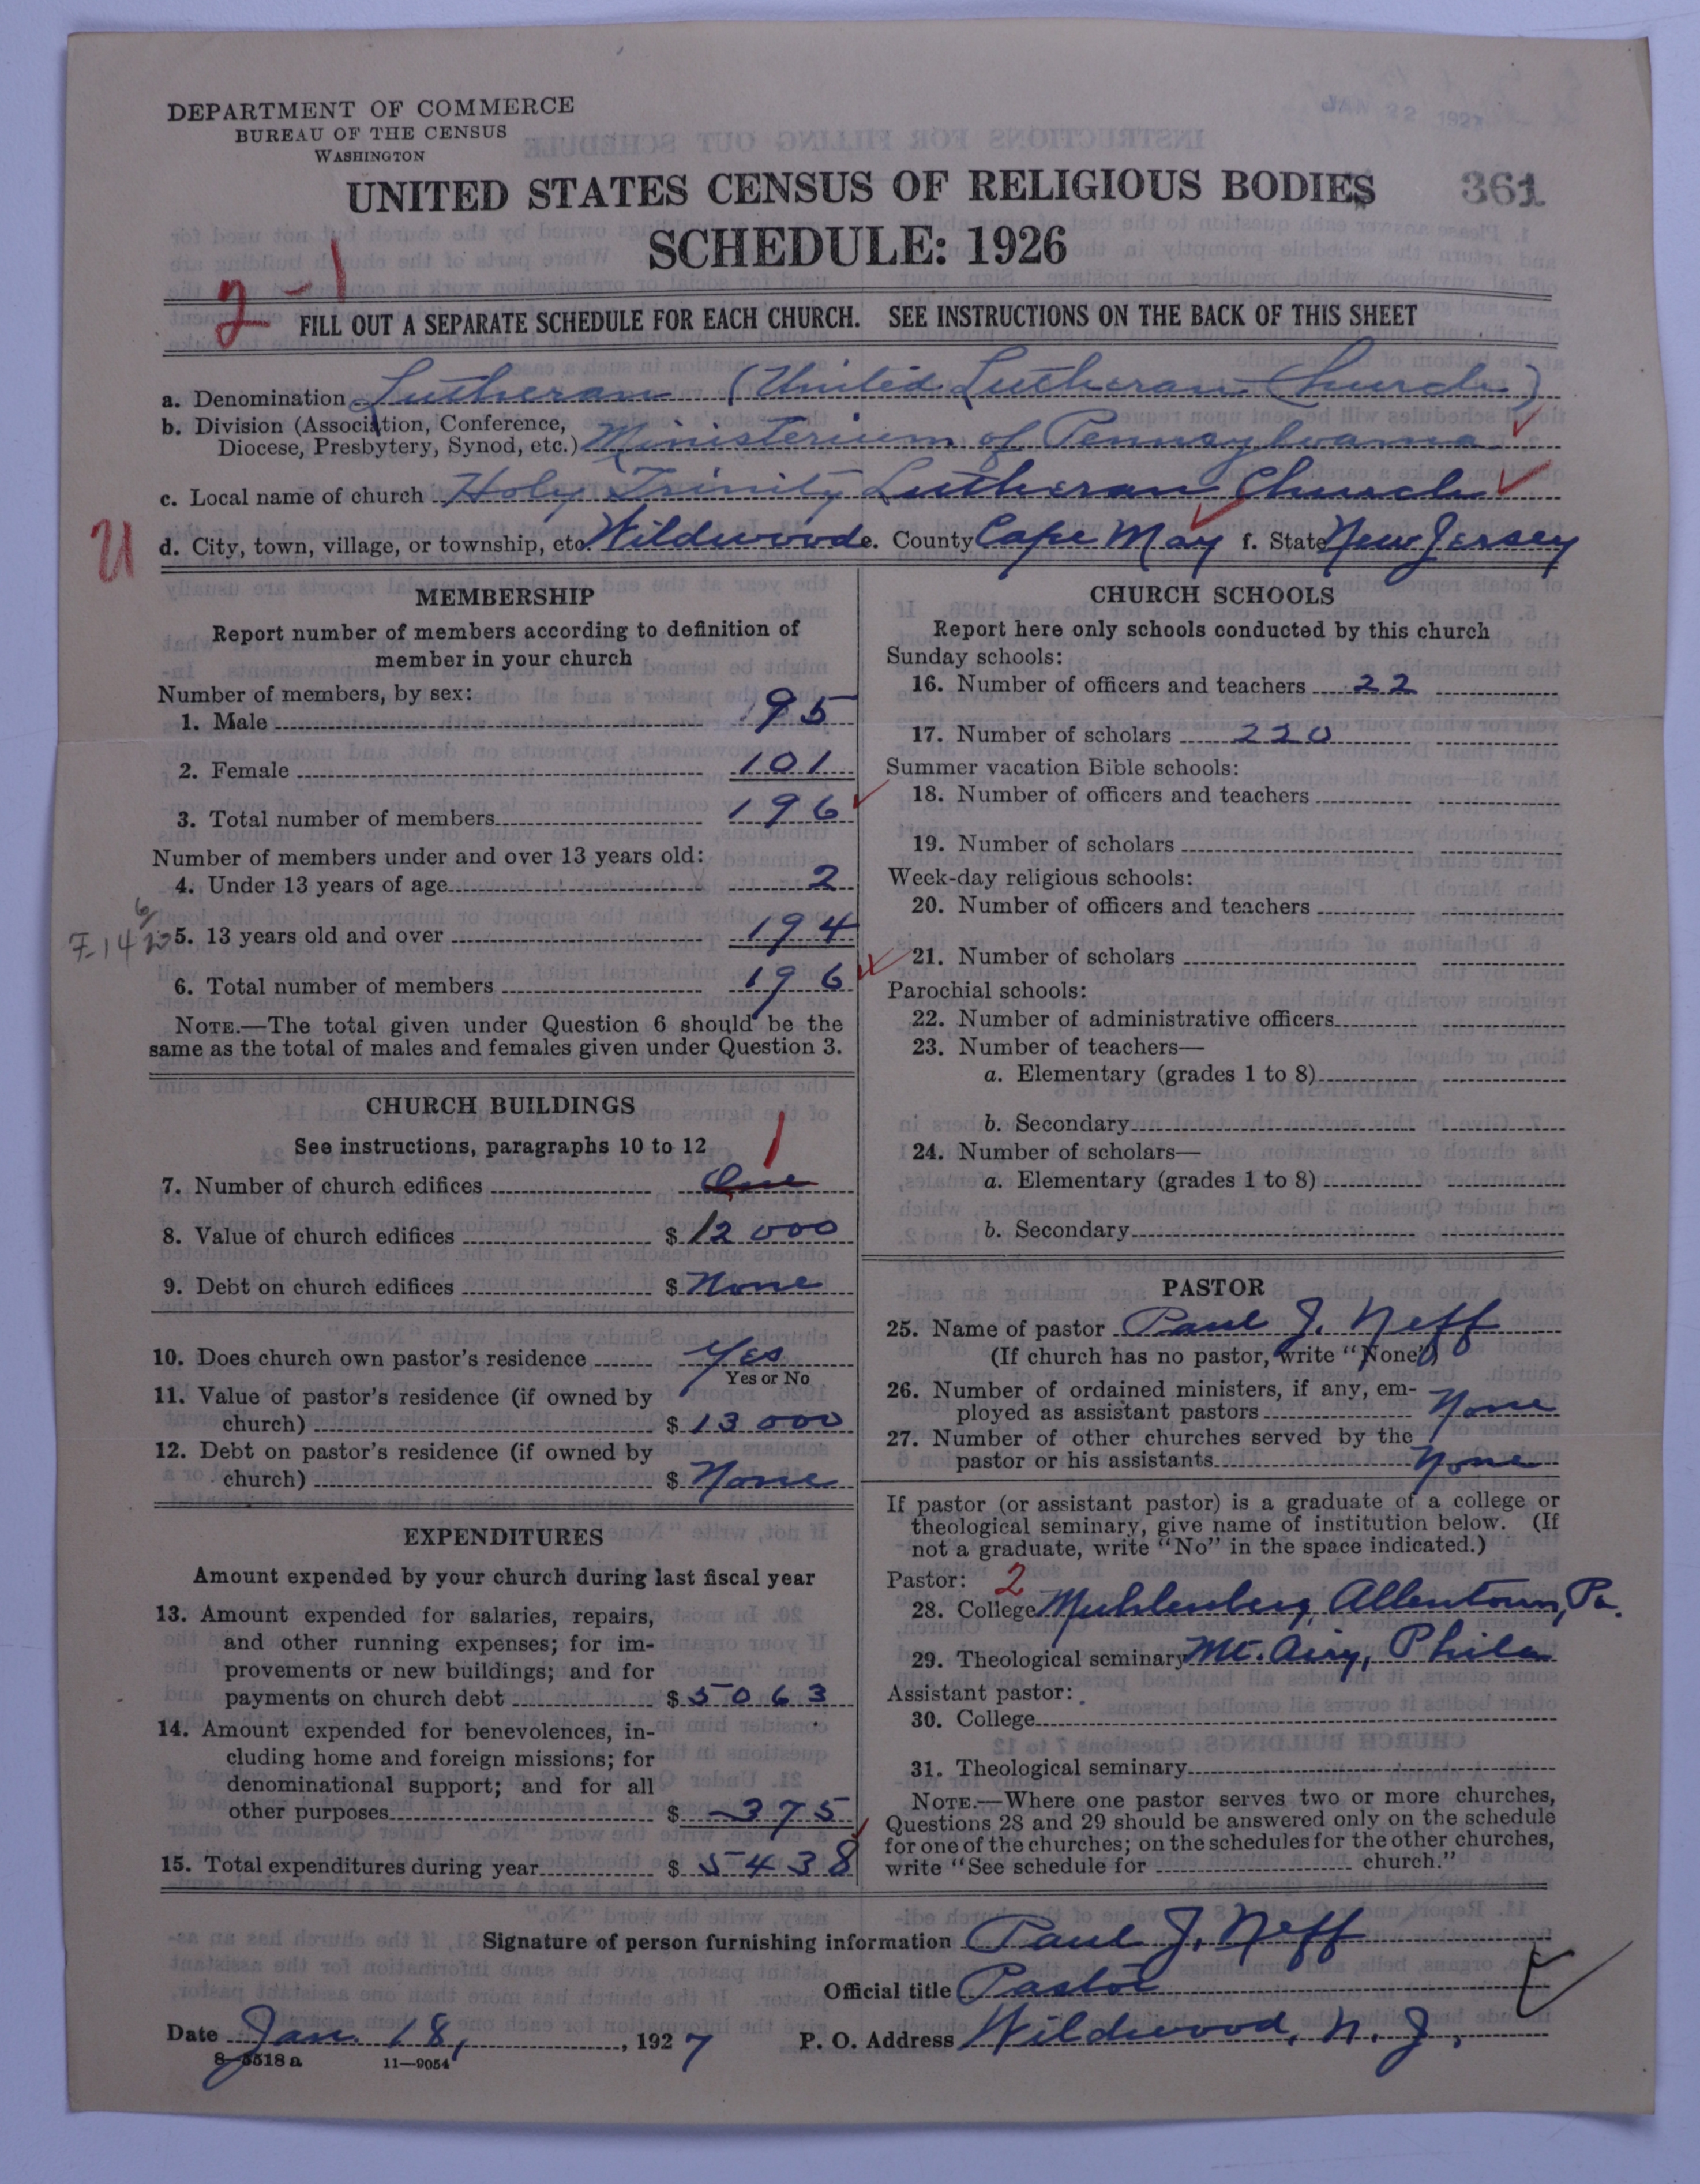 DEPARTMENT OF COMMERCE
BUREAU OF THE CENSUS
WASHINGTON
JAN 22 1927
UNITED STATES CENSUS OF RELIGIOUS BODIES
361
SCHEDULE: 1926
2-1
FILL OUT A SEPARATE SCHEDULE FOR EACH CHURCH. SEE INSTRUCTIONS ON THE BACK OF THIS SHEET
a. Denomination Lutheran (United Lutheran Church)
b. Division (Association, Conference,
Diocese, Presbytery, Synod, etc.) Ministerium of Pennsylvania
c. Local name of church Holy Trinity Lutheran Church
U
d. City, town, village, or township, etc. Wildwood e. County Cape May f. State New Jersey
MEMBERSHIP
Report number of members according to definition of
member in your church
Number of members, by sex:
1. Male 95
2. Female 101
3. Total number of members 196
Number of members under and over 13 years old:
4. Under 13 years of age 2
5. 13 years old and over 194
6. Total number of members 196
NOTE.—The total given under Question 6 should be the
same as the total of males and females given under Question 3.
CHURCH BUILDINGS
See instructions, paragraphs 10 to 12
1
7. Number of church edifices One
8. Value of church edifices $ 12 000
9. Debt on church edifices $ None
10. Does church own pastor's residence Yes
Yes or No
11. Value of pastor's residence (if owned by
church) $ 13 000
12. Debt on pastor's residence (if owned by
church) $ None
EXPENDITURES
Amount expended by your church during last fiscal year
13. Amount expended for salaries, repairs,
and other running expenses; for im-
provements or new buildings; and for
payments on church debt $ 5063
14. Amount expended for benevolences, in-
cluding home and foreign missions; for
denominational support; and for all
other purposes $ 375
15. Total expenditures during year $ 5438
CHURCH SCHOOLS
Report here only schools conducted by this church
Sunday schools:
16. Number of officers and teachers 22
17. Number of scholars 220
Summer vacation Bible schools:
18. Number of officers and teachers
19. Number of scholars
Week-day religious schools:
20. Number of officers and teachers
21. Number of scholars
Parochial schools:
22. Number of administrative officers
23. Number of teachers—
a. Elementary (grades 1 to 8)
b. Secondary
24. Number of scholars—
a. Elementary (grades 1 to 8)
b. Secondary
PASTOR
25. Name of pastor Paul J. Neff
(If church has no pastor, write "None")
26. Number of ordained ministers, if any, em-
ployed as assistant pastors None
27. Number of other churches served by the
pastor or his assistants None
If pastor (or assistant pastor) is a graduate of a college or
theological seminary, give name of institution below. (If
not a graduate, write "No" in the space indicated.)
Pastor: 2
28. College Muhlenberg, Allentown, Pa.
29. Theological seminary Mt. Airy, Phila
Assistant pastor:
30. College
31. Theological seminary
NOTE.—Where one pastor serves two or more churches,
Questions 28 and 29 should be answered only on the schedule
for one of the churches; on the schedules for the other churches,
write "See schedule for church."
Signature of person furnishing information Paul J. Neff
Official title Pastor
Date Jan. 18, 1927 P. O. Address Wildwood, N. J.
8—5518 a 11—9054